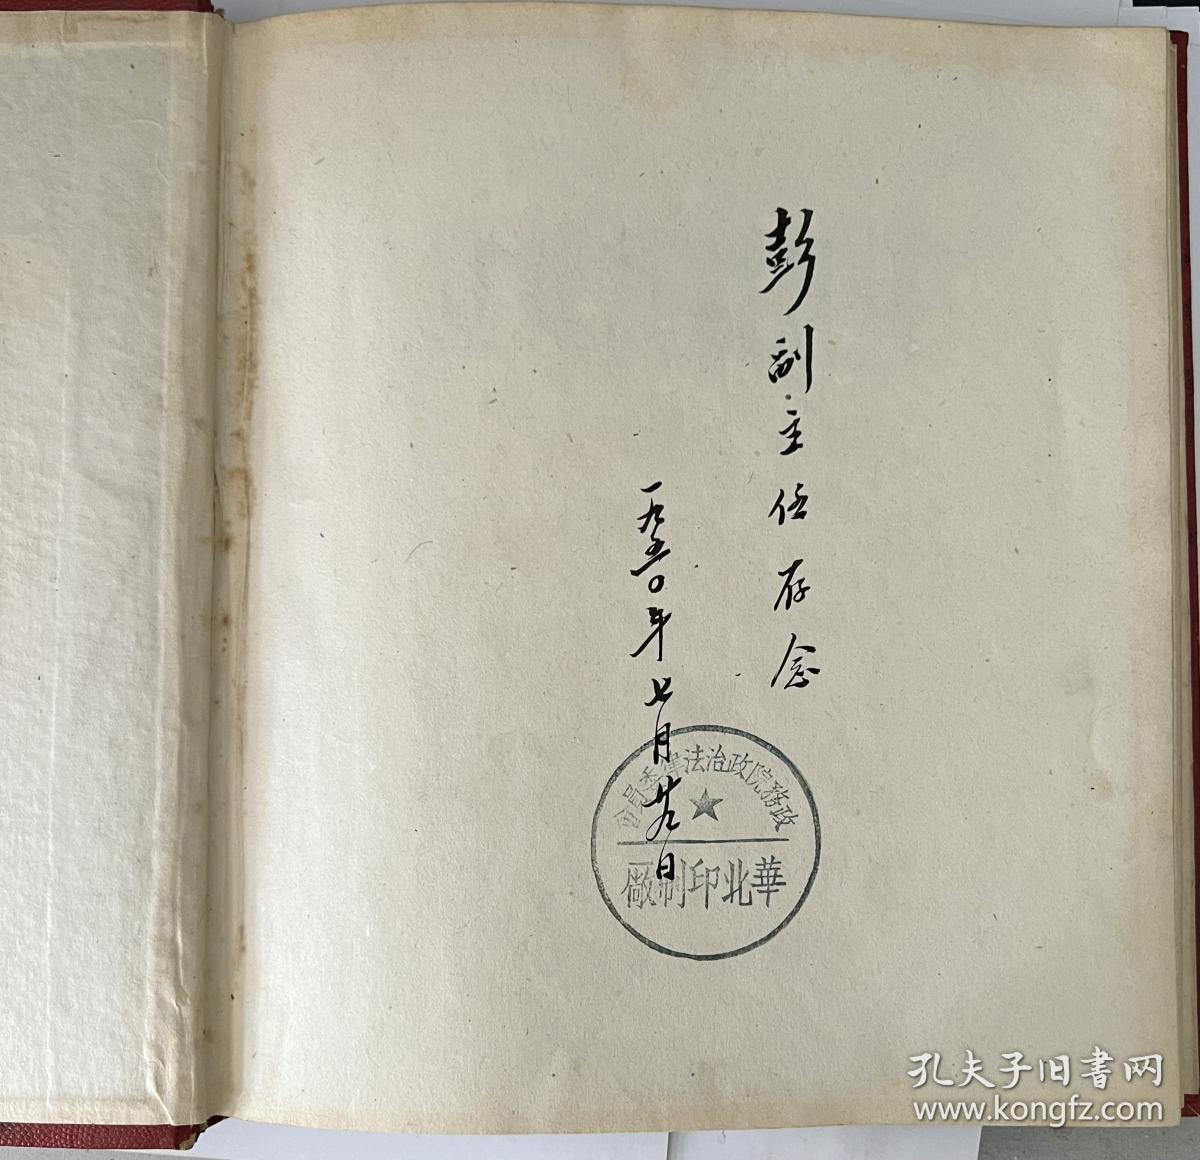 彭副主任存念
一九五〇年七月廿九日
政務院政治法律委員會
華北印制廠
孔夫子旧书网
www.kongfz.com